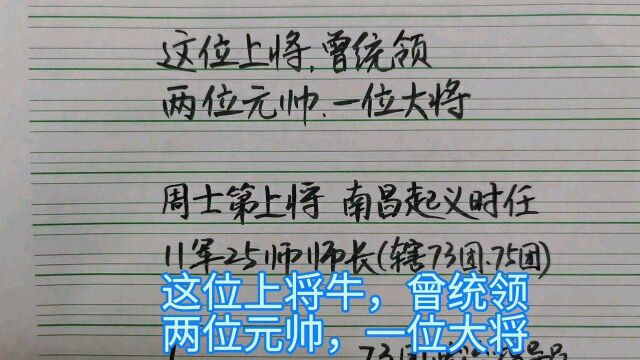 这位上将,曾统领
两位元帅.一位大将
周士第上将 南昌起义时任
11军25师师长(辖73团.75团)
这位上将牛，曾统领
两位元帅，一位大将
73团